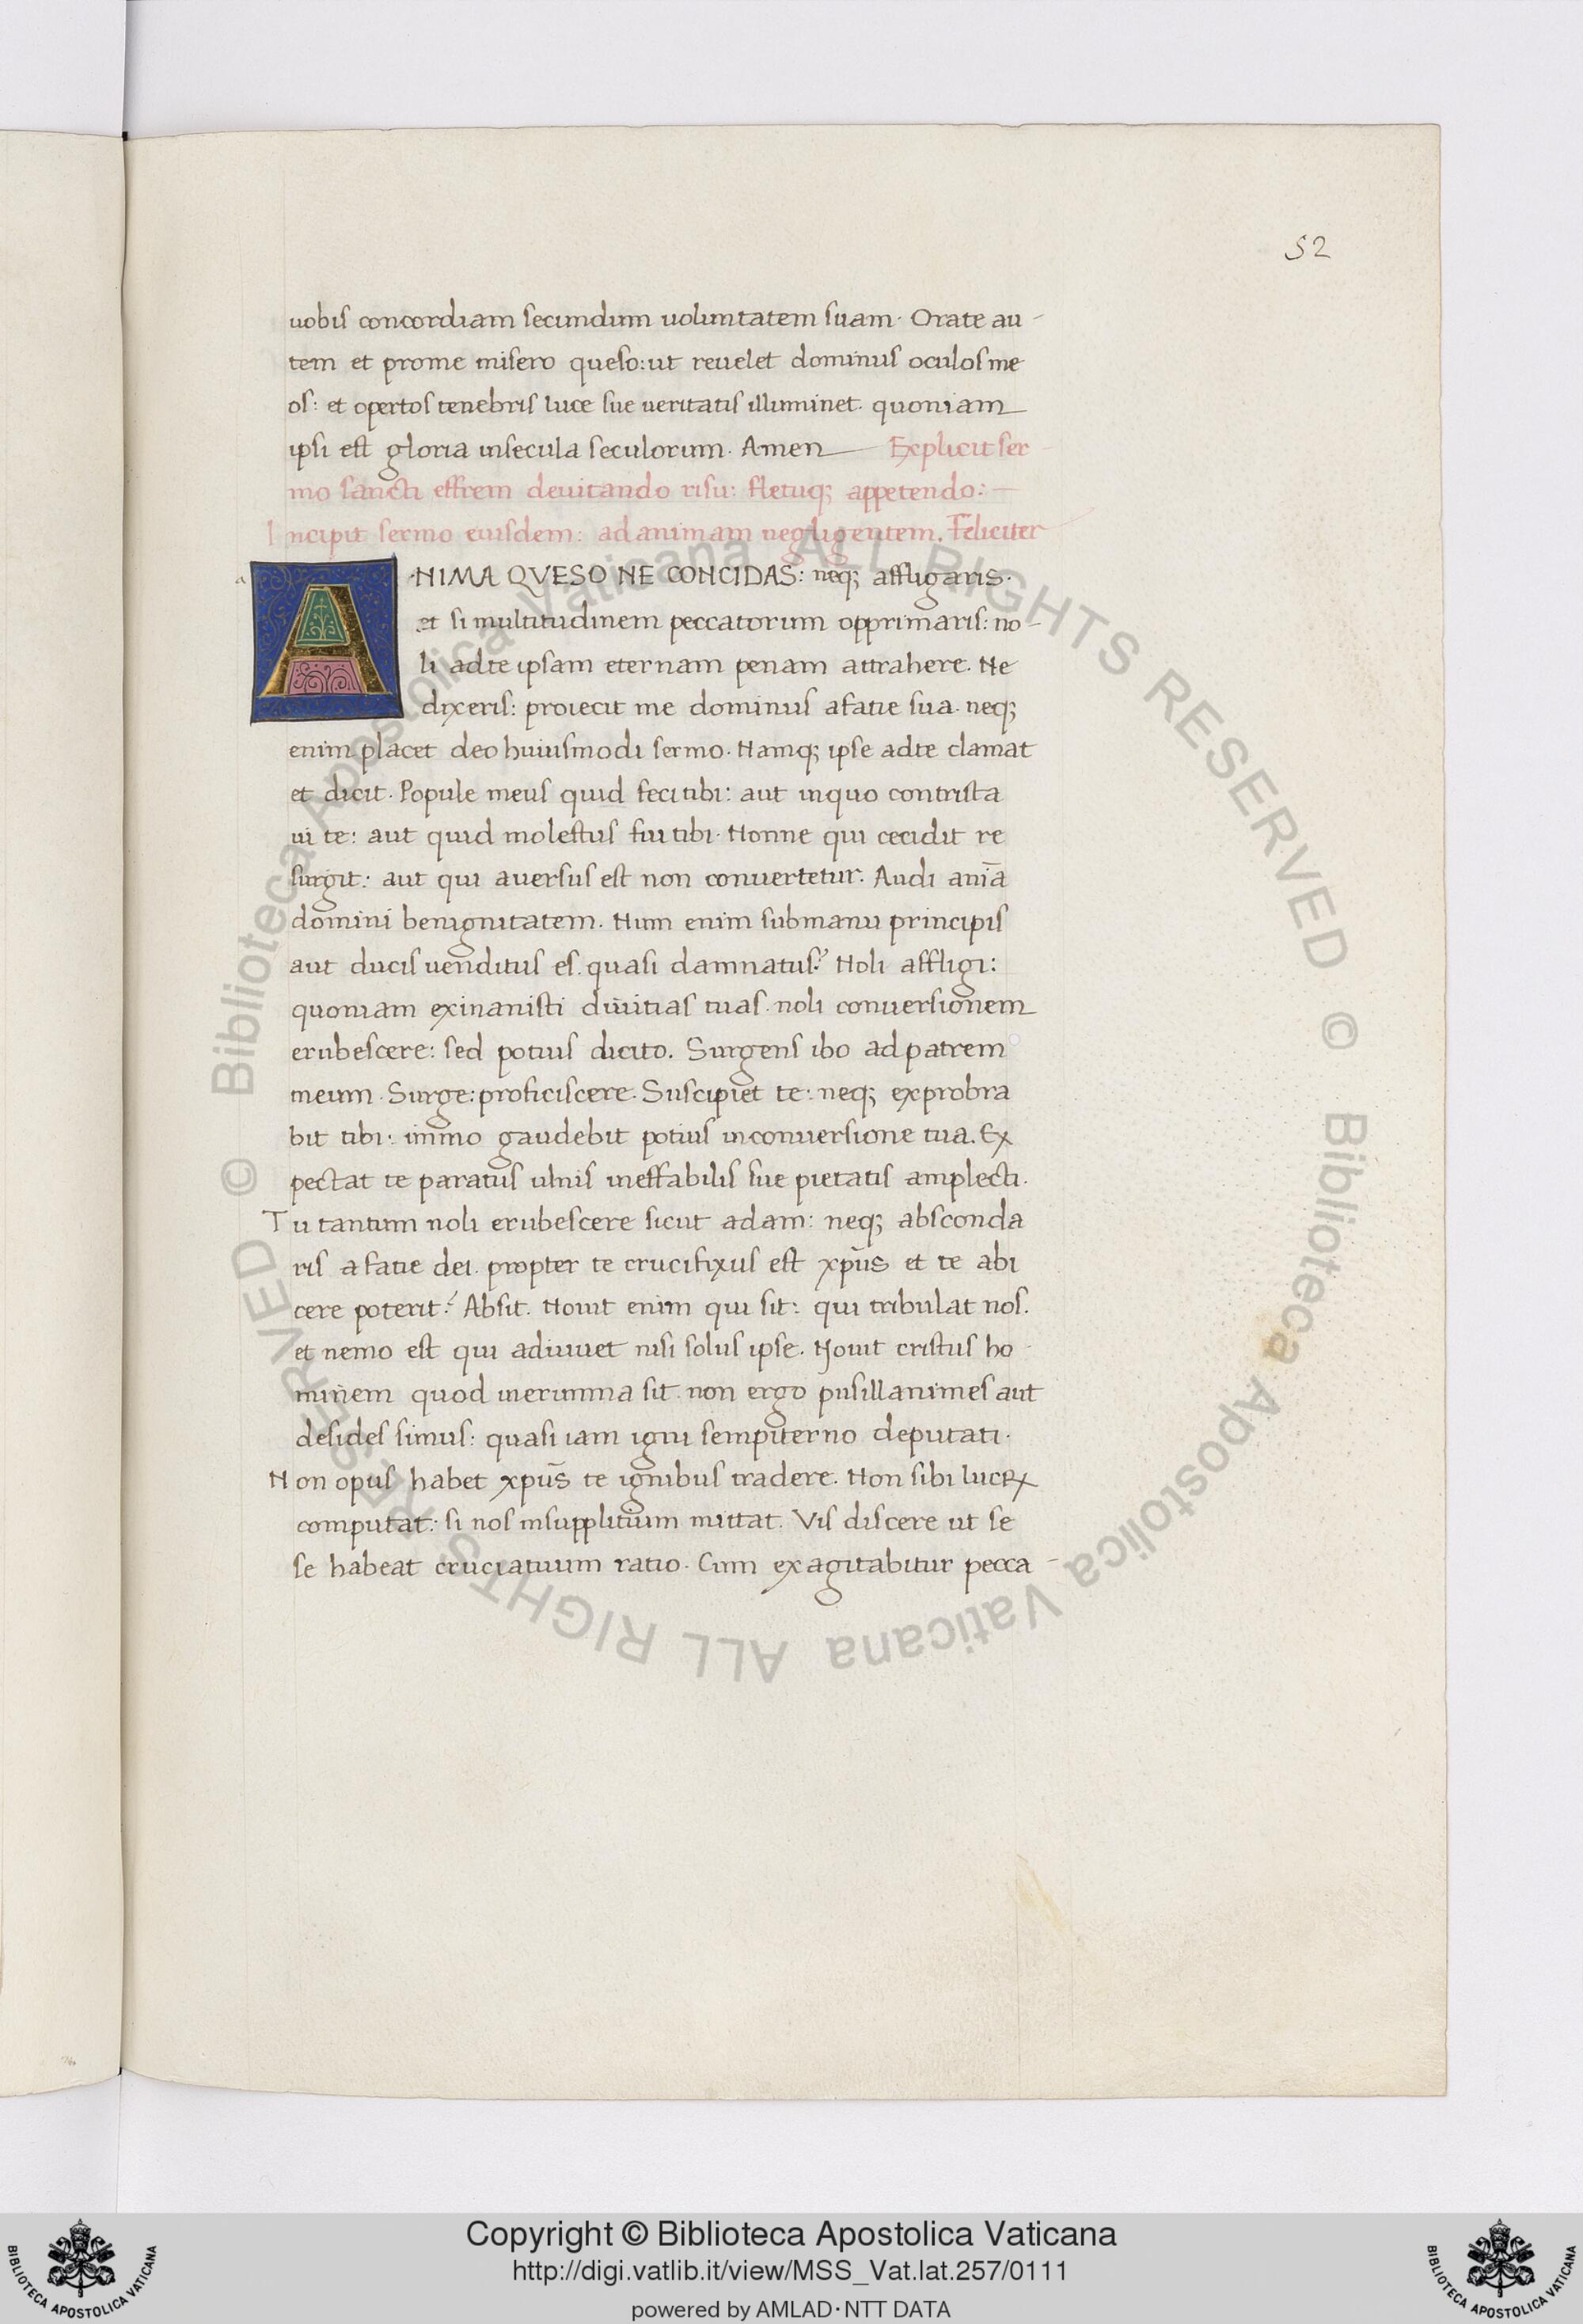 52
uobis concordiam secundum uoluntatem suam. Orate au-
tem et prome misero queso: ut reuelet dominus oculos me
os: et opertos tenebris luce sue ueritatis illuminet. quoniam
ipsi est gloria insecula seculorum. Amen Explicit ser-
mo sancti effrem deuitando risu: fletuq; appetendo:-
Incipit sermo eiusdem: ad animam negligentem. Feliciter
ANIMA QVESO NE CONCIDAS: neq; affligaris.
et si multitudinem peccatorum opprimaris: no-
li adte ipsam eternam penam attrahere. Ne
dixeris: proiecit me dominus afatie sua. neq;
enim placet deo huiusmodi sermo. Namq; ipse adte clamat
et dicit. Popule meus quid feci tibi: aut inquo contrista
ui te: aut quid molestus fui tibi. Nonne qui cecidit re
surgit: aut qui auersus est non conuertetur. Audi anīa
domini benignitatem. Num enim submanu principis
aut ducis uenditus es. quasi damnatus? Noli affligi:
quoniam exinanisti diuitias tuas. noli conuersionem
erubescere: sed potius dicito. Surgens ibo ad patrem
meum. Surge: proficiscere. Suscipiet te: neq; exprobra
bit tibi: immo gaudebit potius inconuersione tua. Ex
pectat te paratus ulnis ineffabilis sue pietatis amplecti.
Tu tantum noli erubescere sicut adam: neq; absconda
ris a fatie dei. propter te crucifixus est xpūs et te abi
cere poterit? Absit. Nouit enim qui sit: qui tribulat nos.
et nemo est qui adiuuet nisi solus ipse. Nouit cristus ho-
minem quod inerumna sit. non ergo pusillanimes aut
desides simus: quasi iam igni sempiterno deputati.
Non opus habet xpūs te ignibus tradere. Non sibi lucꝝ
computat: si nos insupplitium mittat. Vis discere ut se
se habeat cruciatuum ratio. Cum exagitabitur pecca-
© Biblioteca Apostolica Vaticana ALL RIGHTS RESERVED © Biblioteca Apostolica Vaticana ALL RIGHTS RESERVED
Copyright © Biblioteca Apostolica Vaticana
http://digi.vatlib.it/view/MSS_Vat.lat.257/0111
powered by AMLAD·NTT DATA
BIBLIOTECA APOSTOLICA VATICANA
BIBLIOTECA APOSTOLICA VATICANA